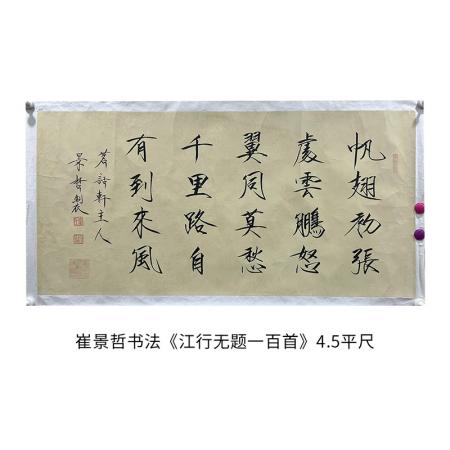 帆翅初張
處雲鵬怒
翼同莫愁
千里路自
有到來風
詩軒主人
景哲製
崔景哲书法《江行无题一百首》4.5平尺